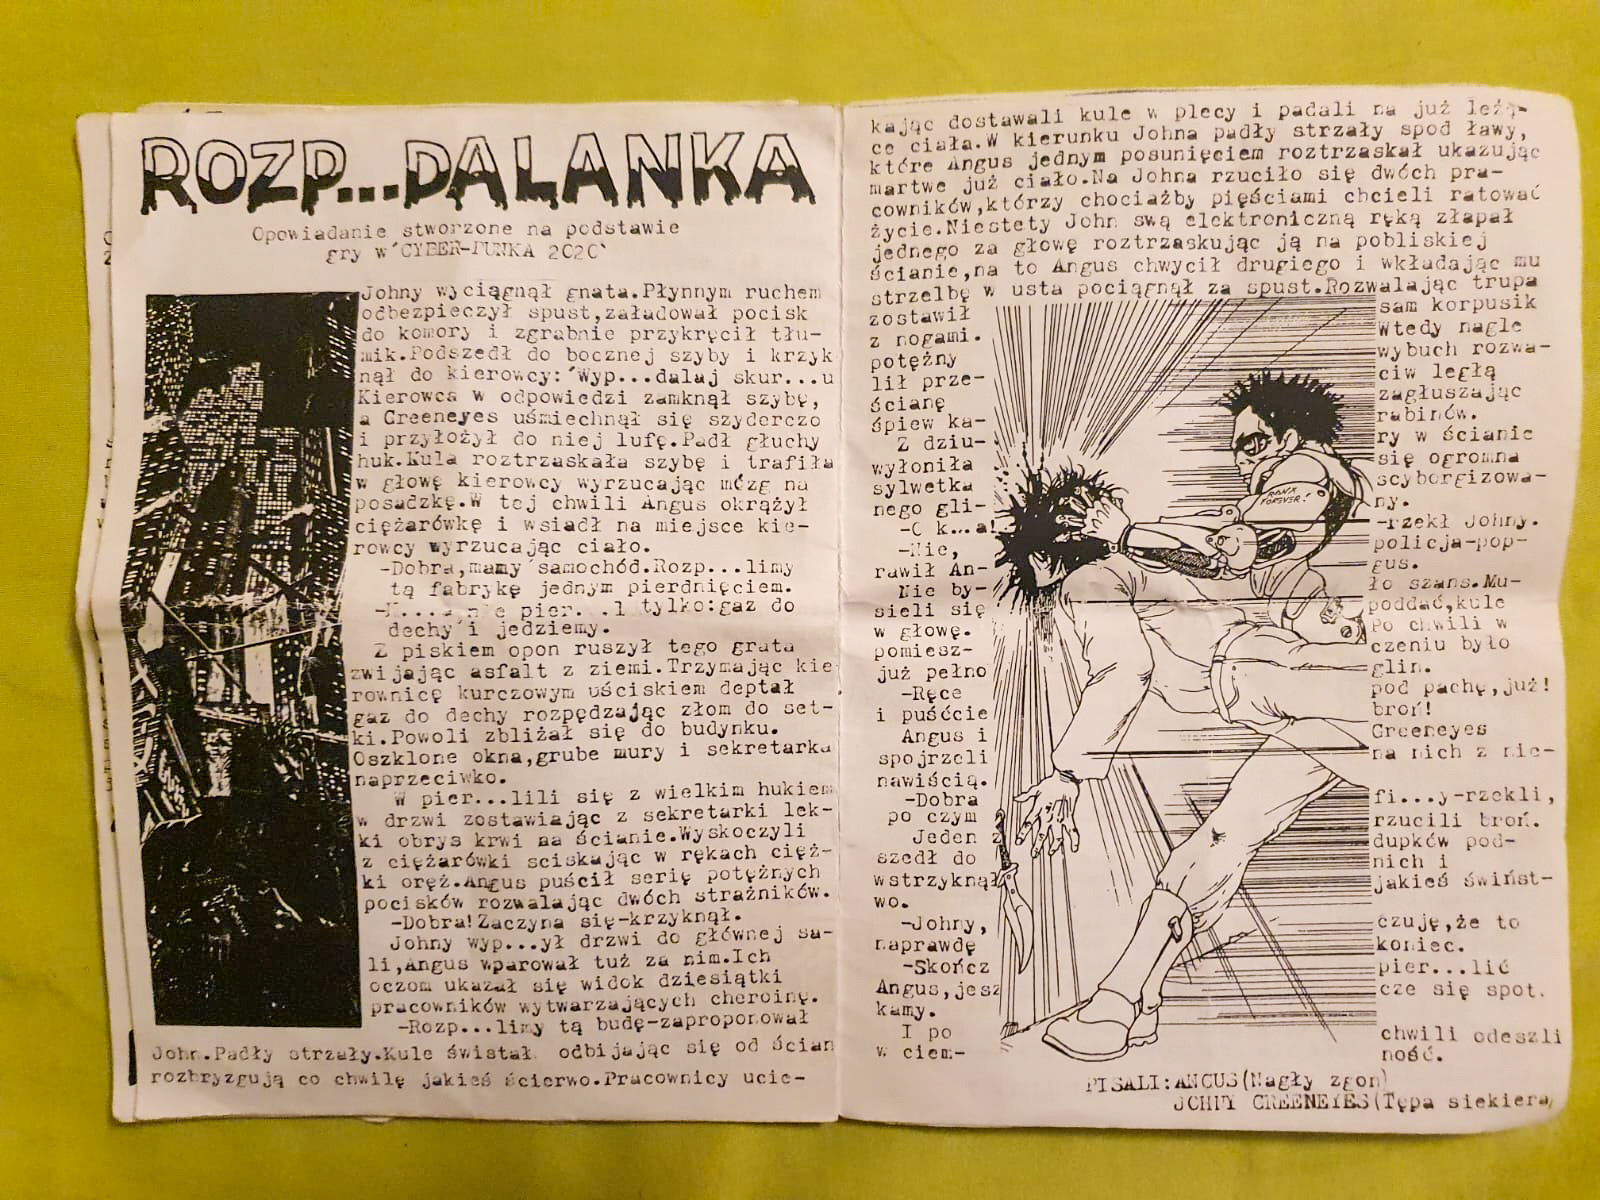 ROZP...DALANKA
Opowiadanie stworzone na podstawie
gry w'CYBER-PUNKA 2020'
Johny wyciągnął gnata.Płynnym ruchem
odbezpieczył spust,załadował pocisk
do komory i zgrabnie przykręcił tłu-
mik.Podszedł do bocznej szyby i krzyk
nął do kierowcy:'Wyp...dalaj skur...u
Kierowca w odpowiedzi zamknął szybę,
a Greeneyes uśmiechnął się szyderczo
i przyłożył do niej lufę.Padł głuchy
huk.Kula roztrzaskała szybę i trafiła
w głowę kierowcy wyrzucając mózg na
posadzkę.W tej chwili Angus okrążył
ciężarówkę i wsiadł na miejsce kie-
rowcy wyrzucając ciało.
-Dobra,mamy samochód.Rozp...limy
tą fabrykę jednym pierdnięciem.
tylko:gaz do
dechy i jedziemy.
Z piskiem opon ruszył tego grata
zwijając asfalt z ziemi.Trzymając kie
rownicę kurczowym uściskiem deptał
gaz do dechy rozpędzając złom do set-
ki.Powoli zbliżał się do budynku.
Oszklone okna,grube mury i sekretarka
naprzeciwko.
W pier...lili się z wielkim hukiem
w drzwi zostawiając z sekretarki lek-
ki obrys krwi na ścianie.Wyskoczyli
z ciężarówki sciskając w rękach cięż-
ki oręż.Angus puścił serię potężnych
pocisków rozwalając dwóch strażników.
-Dobra!Zaczyna się-krzyknął.
Johny wyp...ył drzwi do głównej sa-
li,Angus wparował tuż za nim.Ich
oczom ukazał się widok dziesiątki
pracowników wytwarzających cheroinę.
-Rozp...limy tą budę-zaproponował
John.Padły strzały.Kule świstał odbijając się od ścian
rozbryzgują co chwilę jakieś ścierwo.Pracownicy ucie-
kając dostawali kule w plecy i padali na już leżą-
ce ciała.W kierunku Johna padły strzały spod ławy,
które Angus jednym posunięciem roztrzaskał ukazując
martwe już ciało.Na Johna rzuciło się dwóch pra-
cowników,którzy chociażby pięściami chcieli ratować
życie.Niestety John swą elektroniczną ręką złapał
jednego za głowę roztrzaskując ją na pobliskiej
ścianie,na to Angus chwycił drugiego i wkładając mu
strzelbę w usta pociągnął za spust.Rozwalając trupa
zostawił sam korpusik
z nogami. Wtedy nagle
potężny wybuch rozwa-
lił prze- ciw ległą
ścianę zagłuszając
śpiew ka- rabinów.
Z dziu- ry w ścianie
wyłoniła się ogromna
sylwetka scyborgizowa-
nego gli- ny.
-O k...a! -rzekł Johny.
-Nie, policja-pop-
rawił An- gus.
Nie by- ło szans.Mu-
sieli się poddać,kule
w głowę. Po chwili w
pomiesz- czeniu było
już pełno glin.
-Ręce pod pachę,już!
i puśćcie broń!
Angus i Greeneyes
spojrzeli na nich z nie-
nawiścią.
-Dobra fi...y-rzekli,
po czym rzucili broń.
Jeden z dupków pod-
szedł do nich i
wstrzyknął jakieś świńst-
wo.
-Johny, czuję,że to
naprawdę koniec.
-Skończ pier...lić
Angus,jesz cze się spot.
kamy.
I po chwili odeszli
w ciem- ność.
RANX
FOREVER!
PISALI:ANGUS(Nagły zgon)
JOHNY GREENEYES(Tępa siekiera)